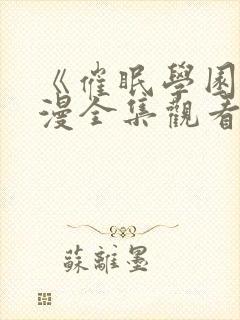 《催眠學園
漫全集觀看
蘇離墨